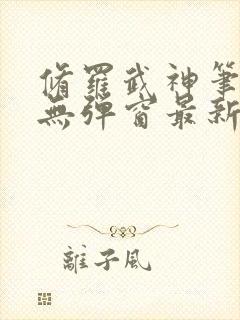 脩羅武神筆
無彈窗最新
離子風